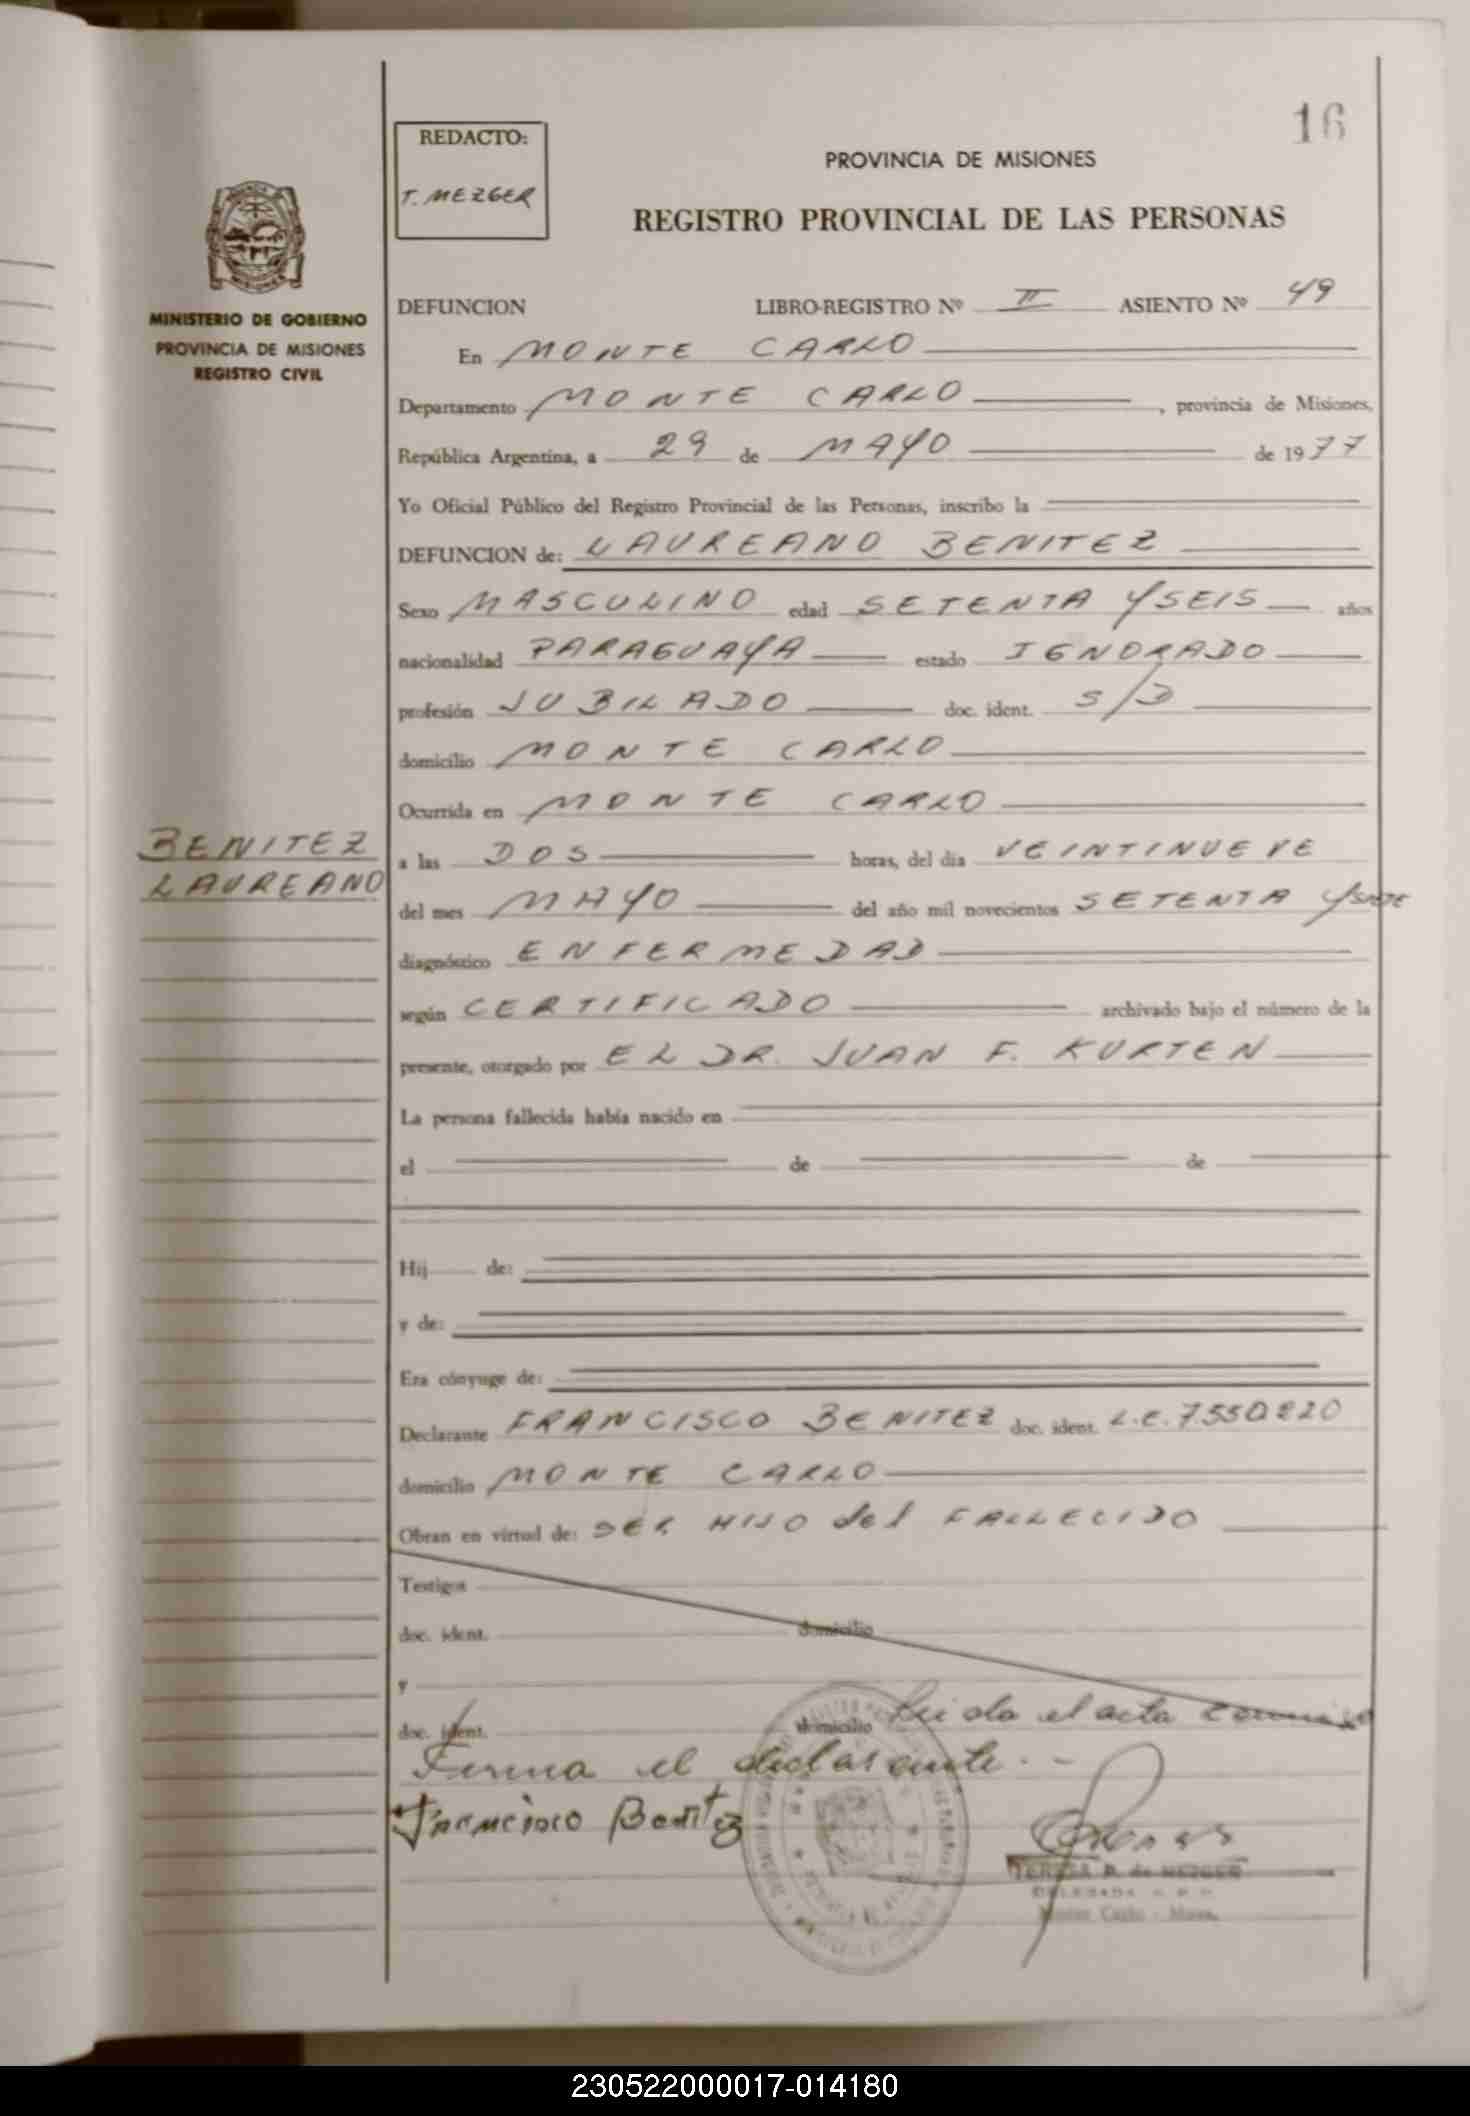 16
REDACTO:
T. MEZGER
PROVINCIA DE MISIONES
REGISTRO PROVINCIAL DE LAS PERSONAS
MINISTERIO DE GOBIERNO
PROVINCIA DE MISIONES
REGISTRO CIVIL
DEFUNCION LIBRO-REGISTRO Nº II ASIENTO Nº 49
En MONTE CARLO
Departamento MONTE CARLO, provincia de Misiones,
República Argentina, a 29 de MAYO de 1977
Yo Oficial Público del Registro Provincial de las Personas, inscribo la
DEFUNCION de: LAUREANO BENITEZ
Sexo MASCULINO edad SETENTA Y SEIS años
nacionalidad PARAGUAYA estado IGNORADO
profesión JUBILADO doc. ident. S/D
domicilio MONTE CARLO
Ocurrida en MONTE CARLO
BENITEZ
LAUREANO
a las DOS horas, del día VEINTINUEVE
del mes MAYO del año mil novecientos SETENTA Y SIETE
diagnóstico ENFERMEDAD
según CERTIFICADO archivado bajo el número de la
presente, otorgado por EL DR. JUAN F. KURTEN
La persona fallecida había nacido en
el de de
Hij de:
y de:
Era cónyuge de:
Declarante FRANCISCO BENITEZ doc. ident. L.E. 7550220
domicilio MONTE CARLO
Obran en virtud de: SER HIJO del FALLECIDO
Testigos
doc. ident. domicilio
y
doc. ident. domicilio Leida el acta
Firma el declarante.-
Francisco Benitez
TERESA P. de MEZGER
DELEGADA R. P. P.
Monte Carlo - Mnes.
230522000017-014180